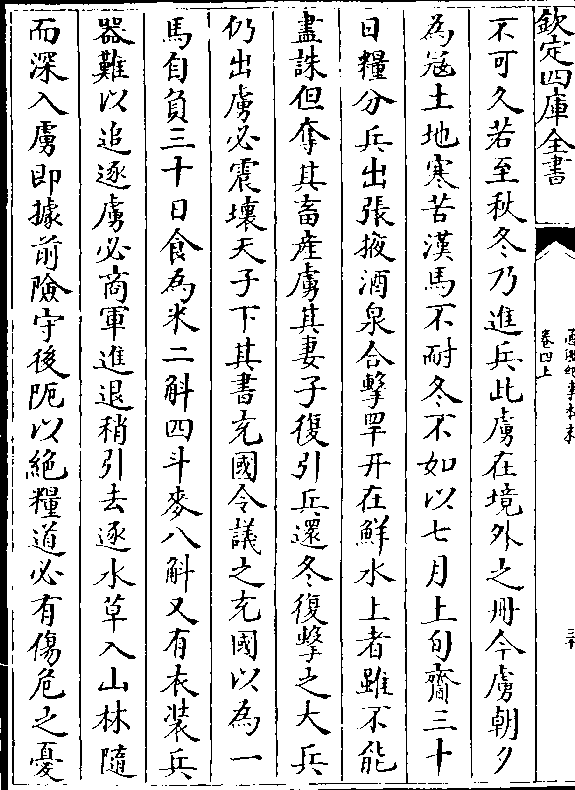 欽定四庫全書
卷四上
不可久若至秋冬乃進兵此虜在境外之冊今虜朝夕
為寇土地寒苦漢馬不耐冬不如以七月上旬齎三十
日糧分兵出張掖酒泉合擊䍐开在鮮水上者雖不能
盡誅但奪其畜産虜其妻子復引兵還冬復擊之大兵
仍出虜必震壞天子下其書充國令議之充國以為一
馬自負三十日食為米二斛四斗麥八斛又有衣装兵
器難以追逐虜必商軍進退稍引去逐水草入山林隨
而深入虜即據前險守後阨以絶糧道必有傷危之憂